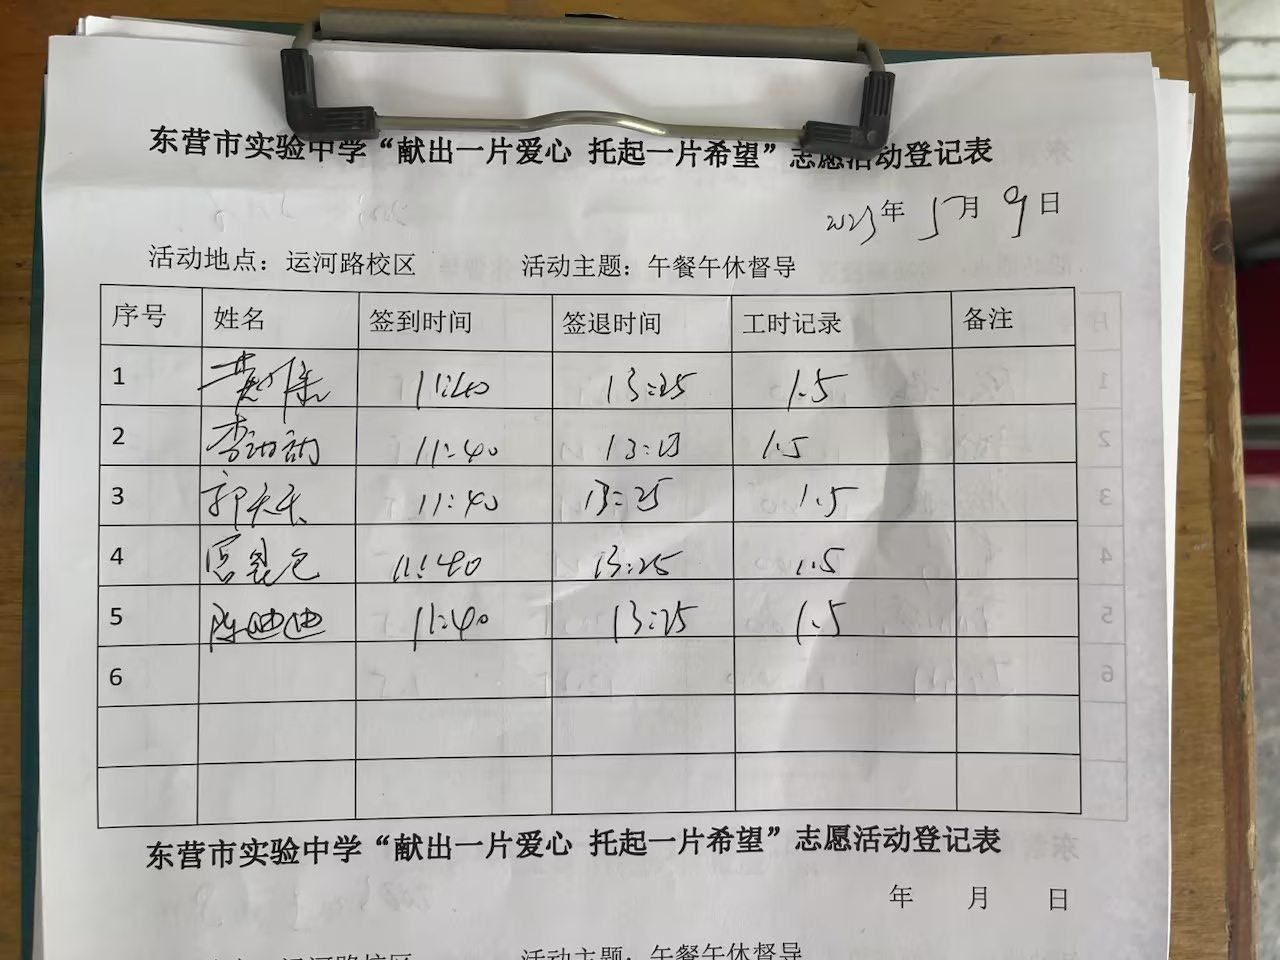 东营市实验中学“献出一片爱心 托起一片希望”志愿活动登记表
2023年 5月 9日
活动地点：运河路校区 活动主题：午餐午休督导
序号 姓名 签到时间 签退时间 工时记录 备注
1 11:40 13:25 1.5
2 11:40 13:25 1.5
3 郭天天 11:40 13:25 1.5
4 11:40 13:25 1.5
5 陈迪迪 11:40 13:25 1.5
6
东营市实验中学“献出一片爱心 托起一片希望”志愿活动登记表
年 月 日
运河路校区 活动主题：午餐午休督导